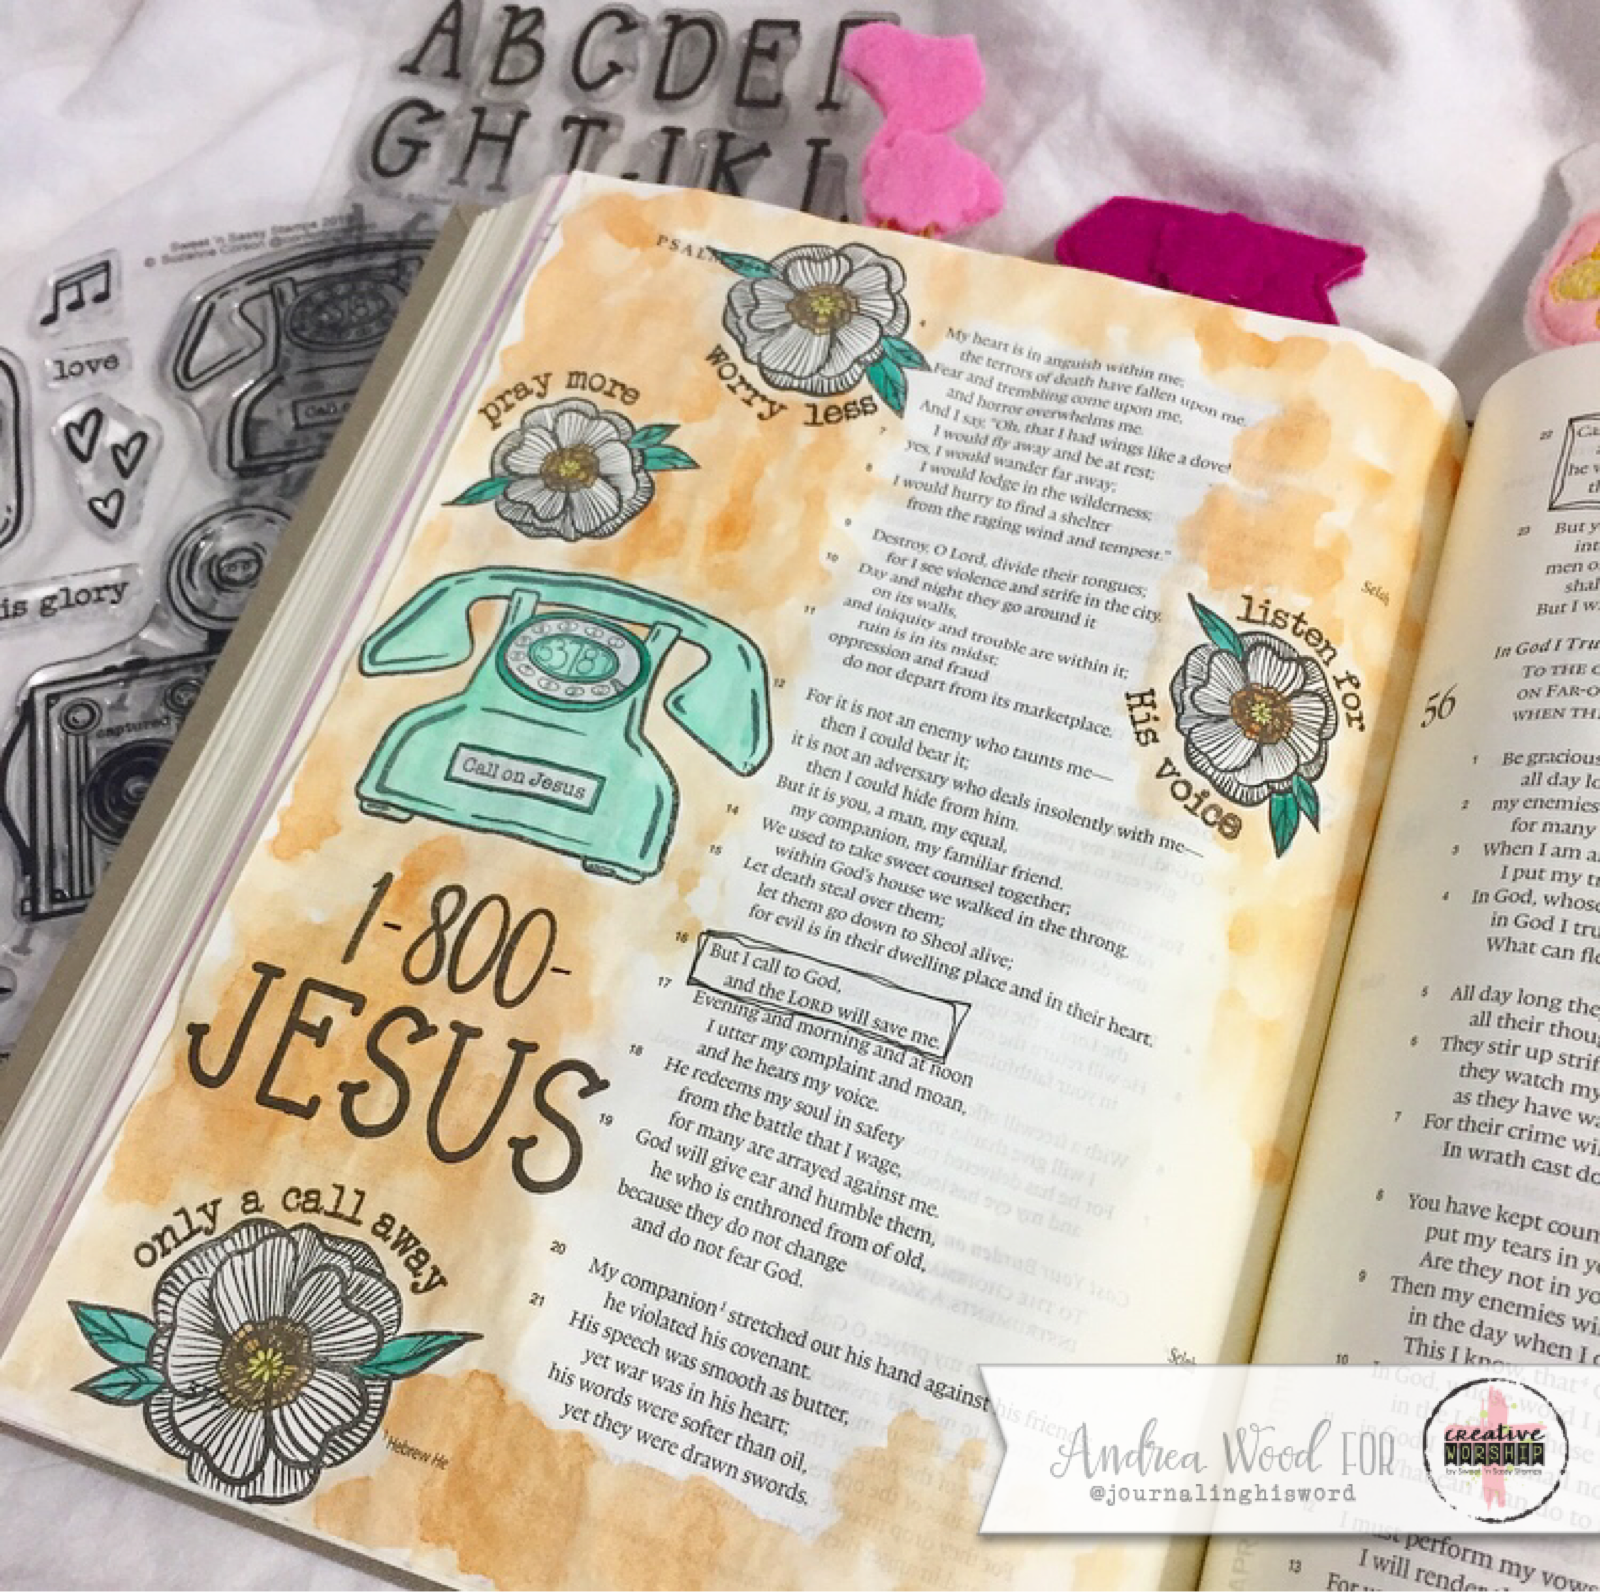 ABCDE
GH
© Sweet 'n Sassy Stamps
love
is glory
captured
PSALM
worry less
pray more
Call on Jesus
1-800-
JESUS
only a call away
listen for
His voice
4 My heart is in anguish within me;
the terrors of death have fallen upon me.
Fear and trembling come upon me,
and horror overwhelms me.
And I say, "Oh, that I had wings like a dove!
I would fly away and be at rest;
7 yes, I would wander far away;
I would lodge in the wilderness;
8 I would hurry to find a shelter
from the raging wind and tempest."
9 Destroy, O Lord, divide their tongues;
for I see violence and strife in the city.
10 Day and night they go around it
on its walls,
and iniquity and trouble are within it;
11 ruin is in its midst;
oppression and fraud
do not depart from its marketplace.
12 For it is not an enemy who taunts me—
then I could bear it;
it is not an adversary who deals insolently with me—
then I could hide from him.
13 But it is you, a man, my equal,
my companion, my familiar friend.
14 We used to take sweet counsel together;
within God's house we walked in the throng.
15 Let death steal over them;
let them go down to Sheol alive;
for evil is in their dwelling place and in their heart.
16 But I call to God,
and the LORD will save me.
17 Evening and morning and at noon
I utter my complaint and moan,
and he hears my voice.
18 He redeems my soul in safety
from the battle that I wage,
for many are arrayed against me.
19 God will give ear and humble them,
he who is enthroned from of old,
because they do not change
and do not fear God.
20 My companion¹ stretched out his hand against his friends
he violated his covenant.
21 His speech was smooth as butter,
yet war was in his heart;
his words were softer than oil,
yet they were drawn swords.
Selah
Selah
¹ Hebrew He
22 Ca
he w
th
23 But y
int
men o
shal
But I w
In God I Tru
TO THE C
ON FAR-O
WHEN THE
56
1 Be gracious
all day lo
2 my enemies
for many
3 When I am a
I put my tr
4 In God, whose
in God I tru
What can fle
5 All day long the
all their thoug
6 They stir up strif
they watch my
as they have wa
7 For their crime wi
In wrath cast do
8 You have kept coun
put my tears in yo
Are they not in yo
9 Then my enemies wi
in the day when I c
This I know, that
10 In God, whose word I p
I must perform my vows
I will render
13 For
Andrea Wood FOR
@journalinghisword
creative
WORSHIP
by Sweet 'n Sassy Stamps